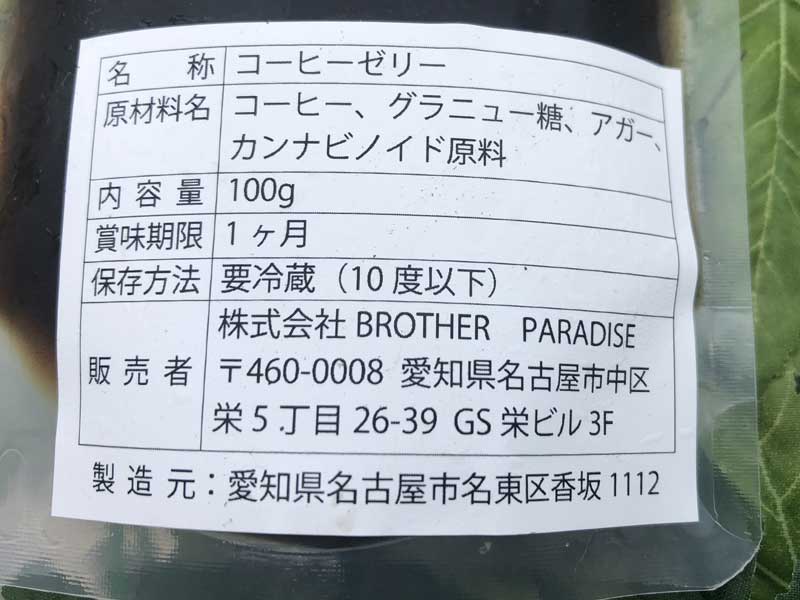 名　称 コーヒーゼリー
原材料名 コーヒー、グラニュー糖、アガー、
カンナビノイド原料
内容量 100g
賞味期限 1ヶ月
保存方法 要冷蔵（10度以下）
株式会社 BROTHER　PARADISE
販売者 〒460-0008 愛知県名古屋市中区
栄5丁目26-39 GS栄ビル3F
製造元：愛知県名古屋市名東区香坂1112